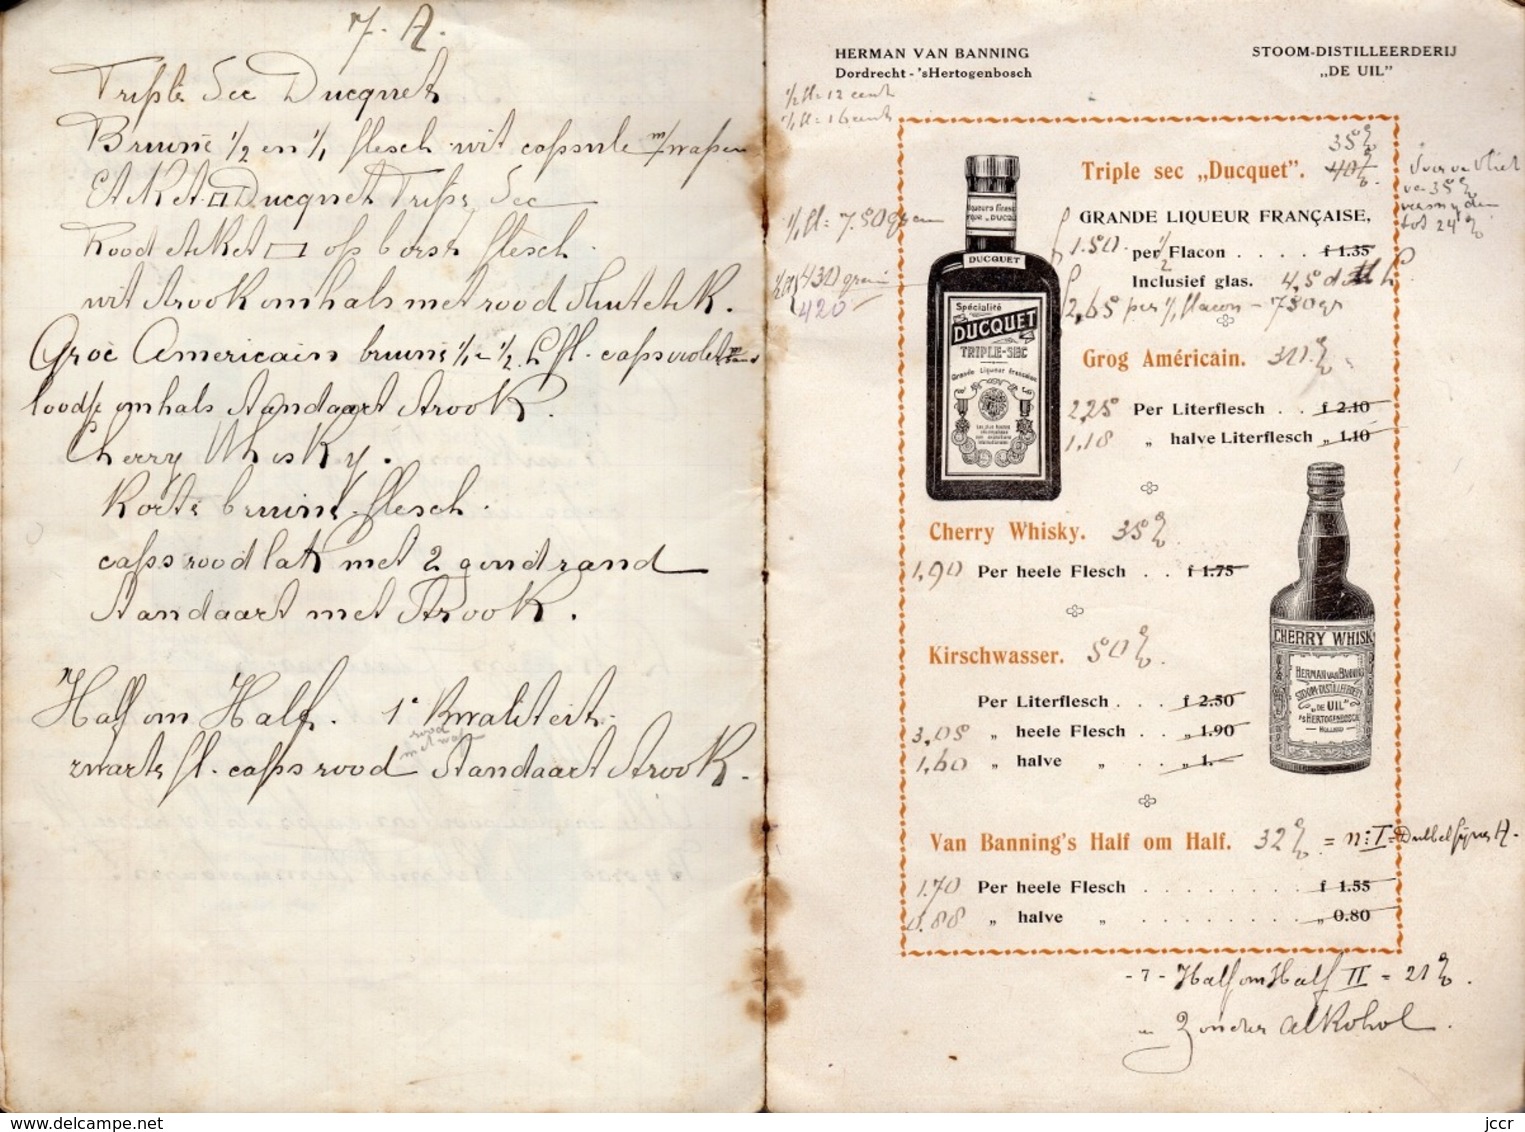 7. A.
Triple Sec Ducquet
Bruine 1/2 en 1/1 flesch wit capsule m/wapen
Etiket Ducquet Triple Sec
Rood etiket op borst flesch.
wit strook om hals met rood
Groc Americain bruine 1/1 - 1/2 L fl. caps violet
om hals Standaart Strook.
Cherry Whisky.
Korte bruine flesch.
caps rood lak met 2 goud rand
Standaart met Strook.
Half om Half. 1e Kwaliteit.
rood
met
zwarte fl. caps rood Standaart Strook.
HERMAN VAN BANNING
Dordrecht - 'sHertogenbosch
STOOM-DISTILLEERDERIJ
„DE UIL"
1/2 fl = 12 cent
1/1 fl = 16 cent
35%
Triple sec „Ducquet". 40%
35%
tot 24%
GRANDE LIQUEUR FRANÇAISE,
1/1 fl = 750 gram
1.50 per 1/2 Flacon . . . . f 1.35
Inclusief glas. 4,5
430 gram
420
2,65 per 1/1 flacon - 750 gr
DUCQUET
Spécialité
DUCQUET
TRIPLE-SEC
Grande Liqueur française
Grog Américain.
2,25 Per Literflesch . . f 2.10
1,18 „ halve Literflesch „ 1.10
Cherry Whisky. 35%
1,90 Per heele Flesch . . f 1.75
Kirschwasser. 50%
Per Literflesch . . . f 2.50
3,05 „ heele Flesch . . „ 1.90
1,60 „ halve „ . . „ 1.-
CHERRY WHISK
HERMAN VAN BANNING
STOOM-DISTILLEERDERIJ
„DE UIL"
'sHERTOGENBOSCH
HOLLAND
Van Banning's Half om Half. 32% = n: I = Dubbel A.
1.70 Per heele Flesch . . . . . . . . f 1.55
0.88 „ halve „ . . . . . . . . „ 0.80
- 7 - Half om Half II = 21%.
„ Zonder alkohol.
jccr